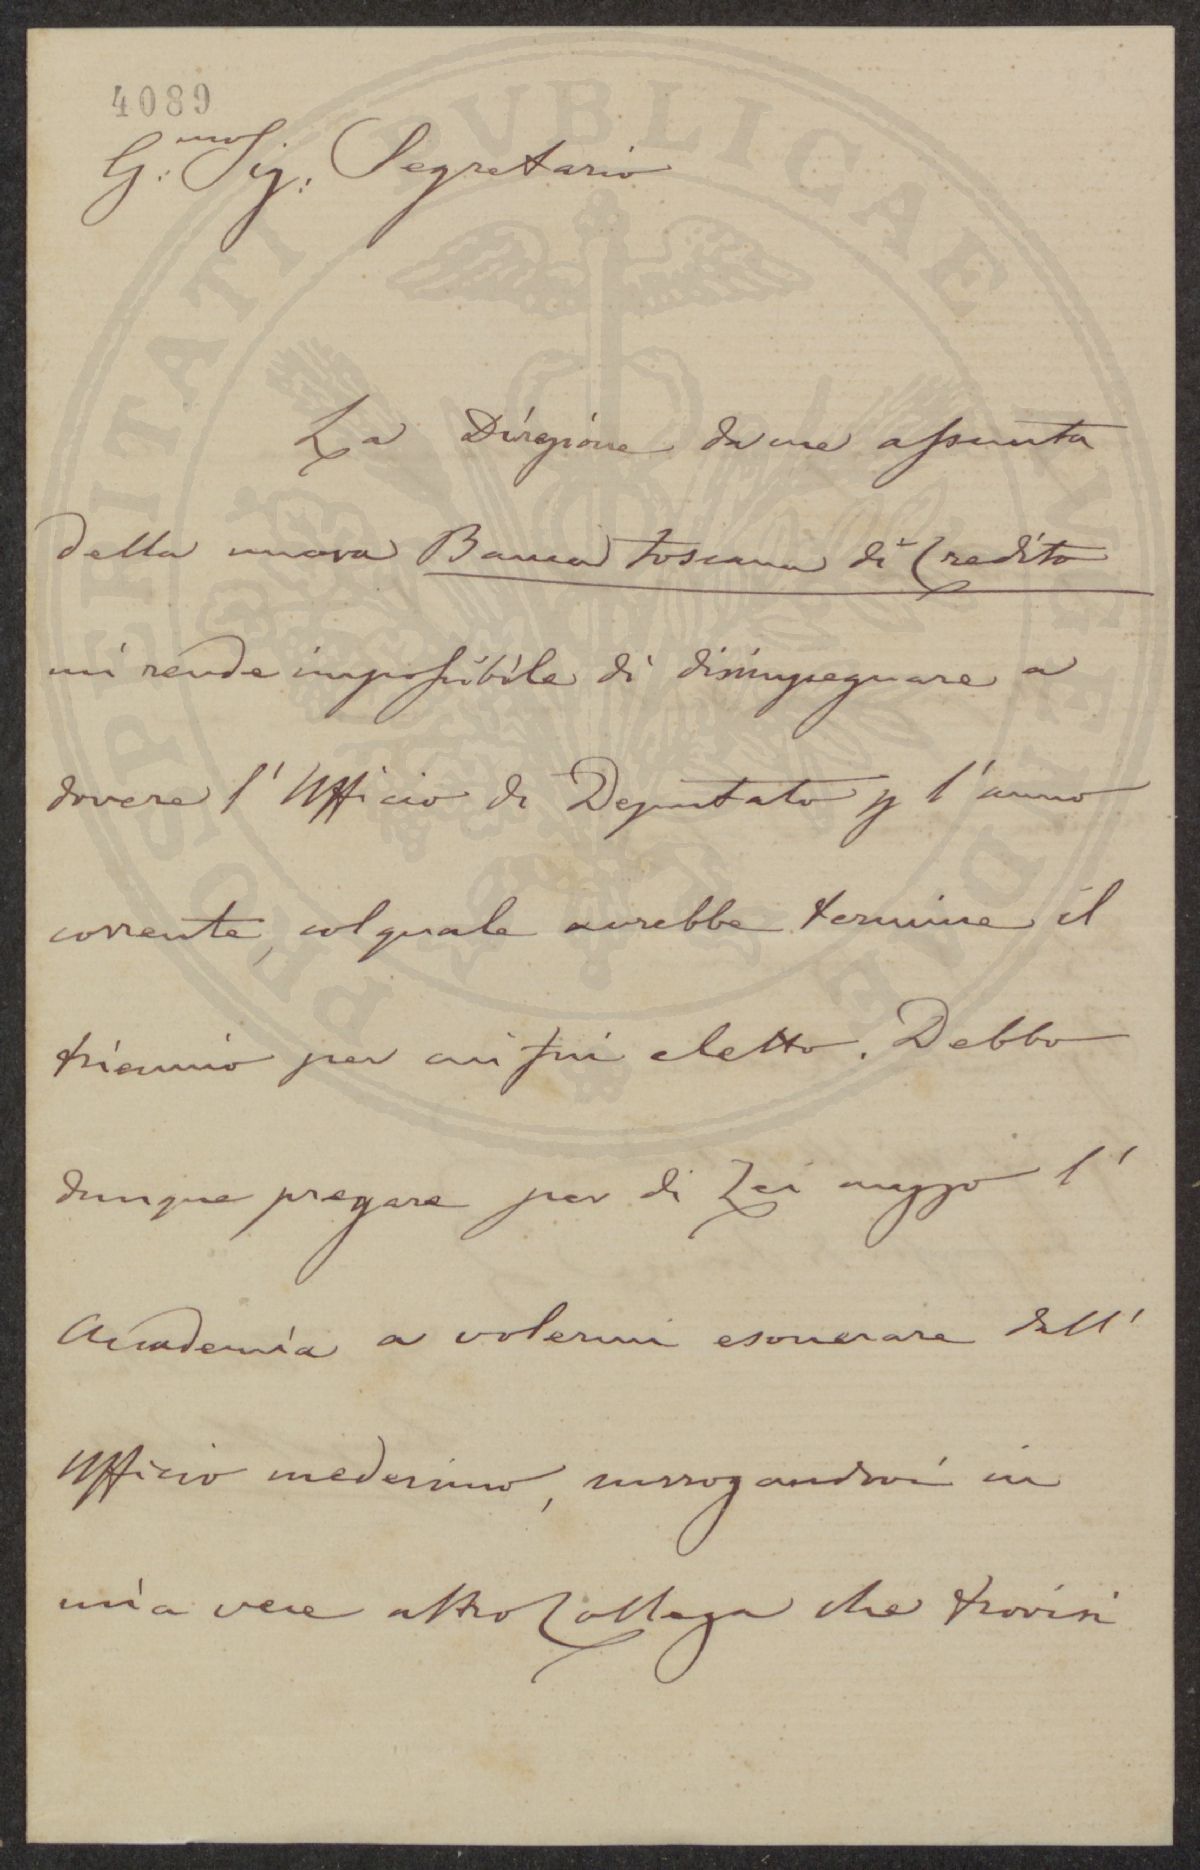 4089
G.mo Sig: Segretario
La Direzione da me assunta
della nuova Banca Toscana di Credito
mi rende impossibile di disimpegnare a
dovere l'Ufficio di Deputato p l'anno
corrente, col quale avrebbe termine il
triennio per cui fui eletto. Debbo
dunque pregare per di Lei mezzo l'
Accademia a volermi esonerare dall'
Ufficio medesimo, surrogandovi in
mia vece altro Collega che trovisi
PROSPERITATI PVBLICAE AVGENDAE